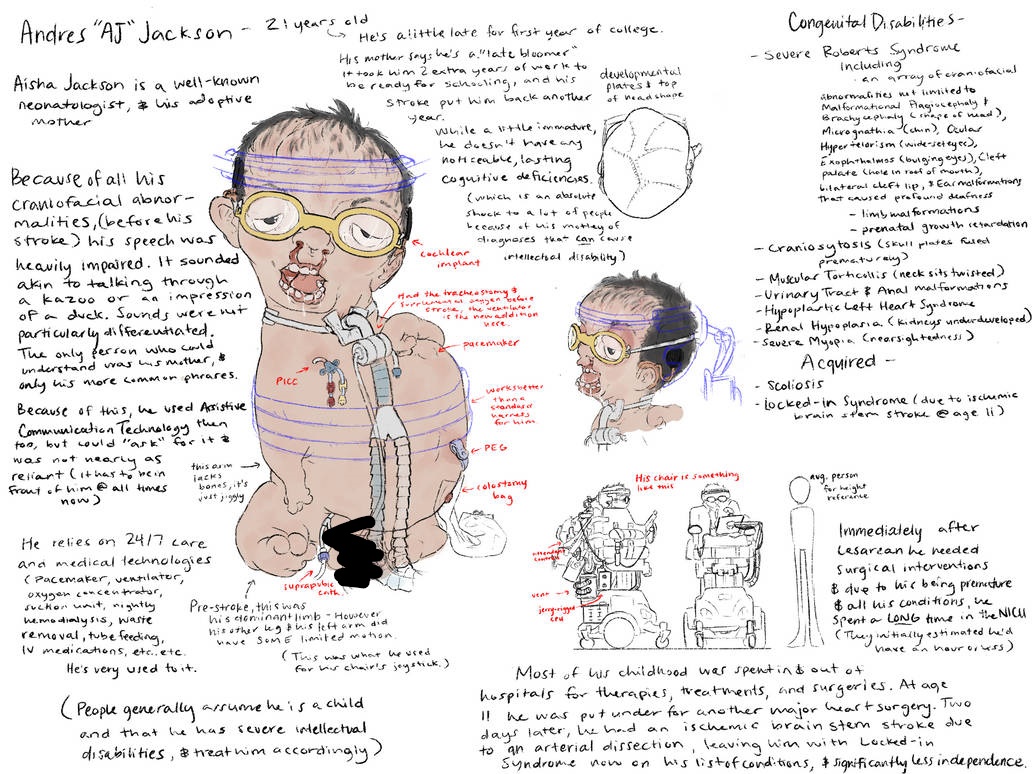 Andres "AJ" Jackson - 21 years old
He's a little late for first year of college.
His mother says he's a "late bloomer"
It took him 2 extra years of work to
be ready for schooling, and his
stroke put him back another
year.
While a little immature,
he doesn't have any
noticeable, lasting
cognitive deficiencies.
(which is an absolute
shock to a lot of people
because of his motley of
diagnoses that can cause
intellectual disability)
Aisha Jackson is a well-known
neonatologist, & his adoptive
mother
Because of all his
craniofacial abnor-
malities, (before his
stroke) his speech was
heavily impaired. It sounded
akin to talking through
a kazoo or an impression
of a duck. Sounds were not
particularly differentiated.
The only person who could
understand was his mother, &
only his more common phrases.
Because of this, he used Assistive
Communication Technology then
too, but could "ask" for it &
was not nearly as
reliant (it has to be in
front of him @ all times
now)
this arm
lacks
bones, it's
just jiggly
He relies on 24/7 care
and medical technologies
(Pacemaker, ventilator,
oxygen concentrator,
suction unit, nightly
hemodialysis, waste
removal, tube feeding,
IV medications, etc..etc.
He's very used to it.
(People generally assume he is a child
and that he has severe intellectual
disabilities, & treat him accordingly)
Pre-stroke, this was
his dominant limb - However
his other leg & his left arm did
have SOME limited motion.
(This was what he used
for his chair's joystick.)
developmental
plates & top
of head shape
cochlear
implant
Had the tracheostomy &
supplemental oxygen before
stroke, the ventilator
is the new addition
here.
pacemaker
PICC
works better
than a
standard
harness
for him
PEG
colostomy
bag
suprapubic
cath.
Congenital Disabilities -
- Severe Roberts Syndrome
Including
- an array of craniofacial
abnormalities not limited to
Malformational Plagiocephaly &
Brachycephaly (shape of head),
Micrognathia (chin), Ocular
Hypertelorism (wide-set eyes),
Exophthalmos (bulging eyes), Cleft
palate (hole in roof of mouth),
bilateral cleft lip, & Ear malformations
that caused profound deafness
- limb malformations
- prenatal growth retardation
- Craniosytosis (skull plates fused
prematurely)
- Muscular Torticollis (neck sits twisted)
- Urinary Tract & Anal malformations
- Hypoplastic Left Heart Syndrome
- Renal Hypoplasia (kidneys underdeveloped)
- Severe Myopia (nearsightedness)
Acquired -
- Scoliosis
- Locked-In Syndrome (due to ischemic
brain stem stroke @ age 11)
His chair is something
like this
attendant
controls
vent
jerry-rigged
CPU
avg. person
for height
reference
Immediately after
cesarean he needed
surgical interventions
& due to his being premature
& all his conditions, he
spent a LONG time in the NICU
(They initially estimated he'd
have an hour or less)
Most of his childhood was spent in & out of
hospitals for therapies, treatments, and surgeries. At age
11 he was put under for another major heart surgery. Two
days later, he had an ischemic brain stem stroke due
to an arterial dissection, leaving him with Locked-in
Syndrome now on his list of conditions, & significantly less independence.